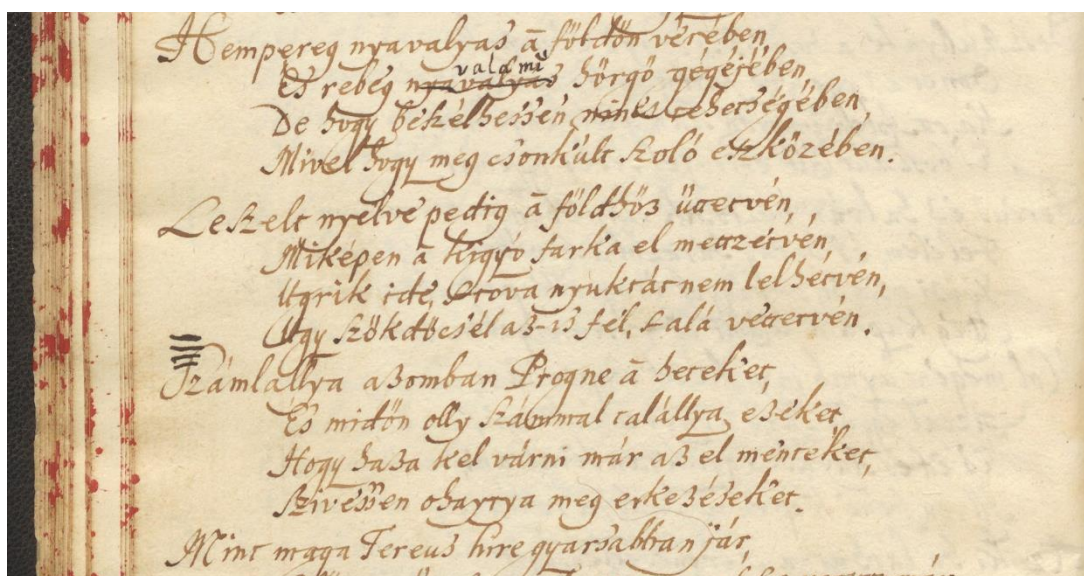 Hempereg nyavalyas ā földön vérében,
És rebeg valami hörgö gégéjében,
De hogy békélhessen nincs tehetségében,
Mivel hogy meg csonkúlt szoló eszközében.
Leszelt nyelve pedig ā földhöz üttetvén,
Miképen ā kigyó farka el mettzetvén,
Ugrik ide, s tova nyuktát nem lelhetvén,
Ugy szökdötsél az-is fél, s alá vettetvén.
Számlállya azomban Progne ā heteket,
És midön olly számmal talállya ezeket,
Hogy haza kel várni már az el menteket,
Szivessen ohaytya meg erkezéseket.
Mint maga Tereus hire gyarsabban jár,